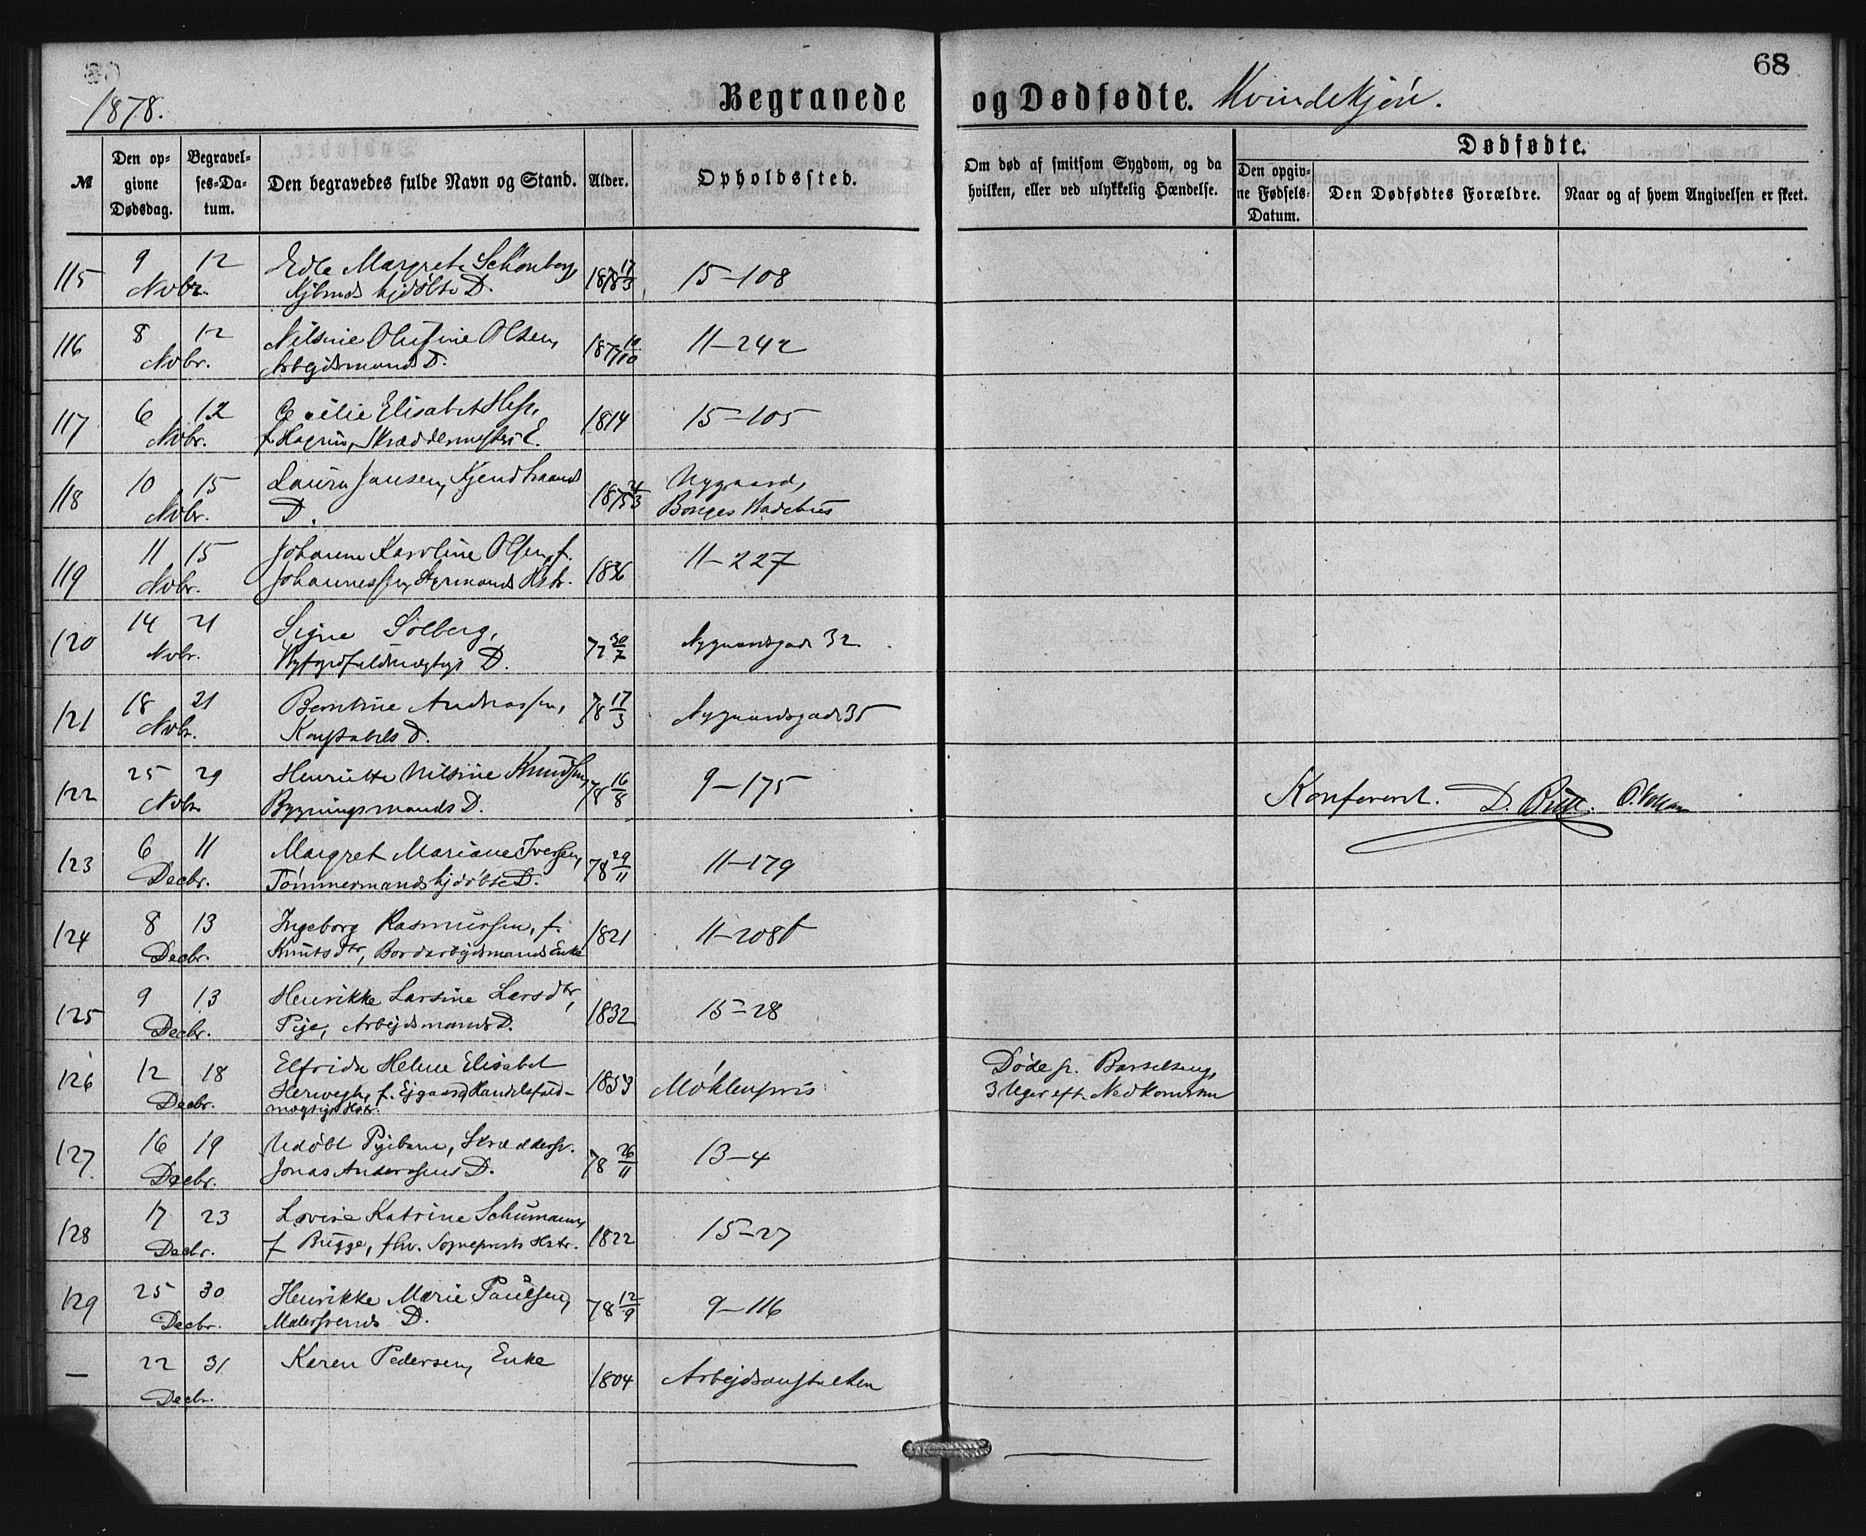 1878.
Begravede og Dødfødte. Kvindekjøn.
68
№
Den opgivne Dødsdag.
Begravelses-Datum.
Den begravedes fulde Navn og Stand.
Alder.
Opholdssted.
Om død af smitsom Sygdom, og da hvilken, eller ved ulykkelig Hændelse.
Dødfødte.
Den opgivne Fødsels-Datum.
Den Dødfødtes Forældre.
Naar og af hvem Angivelsen er skeet.
115 9 12 Edle Margrete Schønberg, 1878 17/3 15-108
Novbr. D.
116 8 12 Nilsine Olufine Olsen, 11-242
Novbr. Arbejdsmands D.
117 6 12 Cecilie Elisabet 1814 15-105
Novbr. Skræddermesters E.
118 10 15 Laura Jansen, Nygaard,
Novbr. D.
119 11 15 Karoline Olsen, f. 1836 11-227
Novbr. Johannessen, Styrmands Hstr.
120 14 21 Signe Solberg, 77 30/7 Nygaardsgade 32
Novbr. D.
121 18 21 Berntine Andreassen, 78 17/3 Nygaardsgade 35
Novbr. Konstabels D.
122 25 29 Henriette Nilsine Knudsen, 78 16/8 9-175
Novbr. Bygningsmands D.
Konfereret. D.
123 6 11 Margret Mariane Iversen, 78 29/11 11-179
Decbr. Tømmermands D.
124 8 13 Ingeborg Rasmussen, f. 1821 11-208b
Decbr. Knutsdtr, Bordarbejdsmands Enke
125 9 13 Henrikke Larsine Larsdtr, 1832 15-28
Decbr. Pige, Arbejdsmands D.
126 12 18 Elfride Helene Elisabet 1853 Møhlenpris Døde fr. Barselseng,
Decbr. Herwegh, f. Ejgaard, Handelsfuld- 3 Uger eft. Nedkomsten
mægtigs Hstr.
127 16 19 Udøbt Pigebarn, Skræddersv. 78 26/11 13-4
Decbr. Jonas Anderssens D.
128 17 23 Lovise Katrine Schumann, 1822 15-27
Decbr. f Bugge, fhv. Sogneprests Hstr.
129 25 30 Henrikke Marie Paulsen, 78 12/9 9-116
Decbr. Malersvends D.
— 22 31 Karen Pedersen, Enke 1804 Arbejdsanstalten
Decbr.